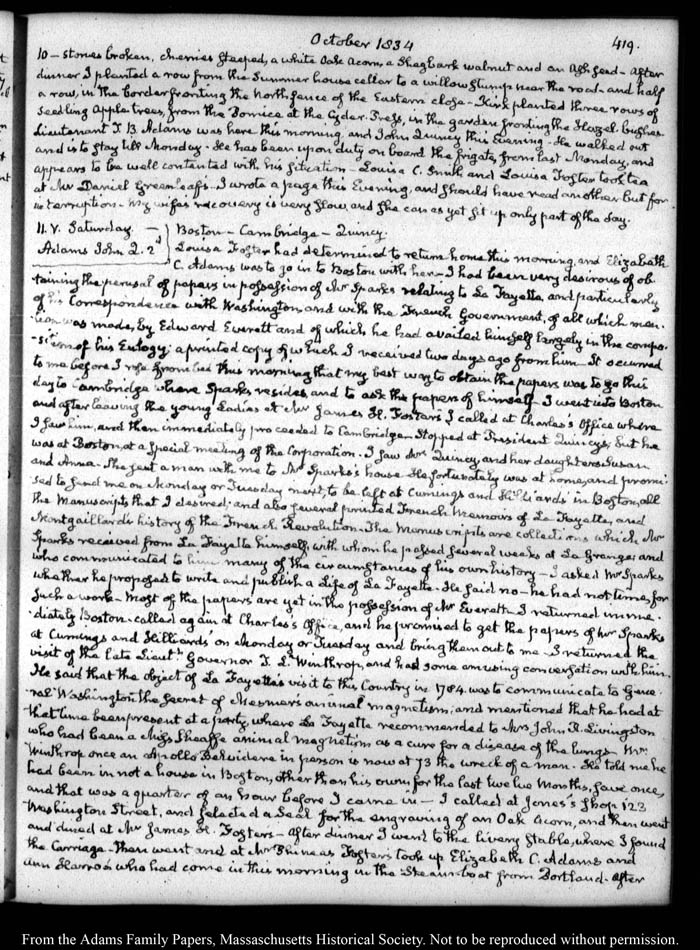 October 1834
419.
10 — stones broken, cherries steeped, a white Oak Acorn, a Shagbark walnut and an Ash seed — After
dinner I planted a row from the Summer house cellar to a willow stump near the road — and half
a row, in the border fronting the North fence of the Eastern close — Kirk planted three rows of
seedling Apple trees, from the Pomice at the Cyder Press, in the garden fronting the Hazel bushes
Lieutenant T. B. Adams was here this morning and John Quincy this Evening — He walked out
and is to stay till Monday. He has been upon duty on board the frigate, from last Monday, and
appears to be well contented with his situation — Louisa C. Smith and Louisa Foster took tea
at Mr Daniel Greenleaf's. I wrote a page this Evening, and should have read another but for
interruption — My wife's recovery is very slow, and she can as yet sit up only part of the day.
11. V. Saturday — Boston — Cambridge — Quincy.
Adams John Q. 2d Louisa Foster had determined to return home this morning, and Elizabeth
C. Adams was to go in to Boston with her — I had been very desirous of ob-
taining the perusal of papers in possession of Mr Sparks relating to La Fayette, and particularly
of his Correspondence with Washington, and with the French Government, of all which men-
tion was made, by Edward Everett and of which he had availed himself largely in the compo-
sition of his Eulogy; a printed copy of which I received two days ago from him — It occurred
to me before I rose from bed this morning that my best way to obtain the papers was to go this
day to Cambridge where Sparks resides, and to ask the papers of himself — I went into Boston
and after leaving the young Ladies at Mr James H. Foster's I called at Charles's Office where
I saw him, and then immediately proceeded to Cambridge. Stopped at President Quincy's, but he
was at Boston, at a Special meeting of the Corporation. I saw Mrs Quincy, and her daughters Susan
and Anna. She sent a man with me to Mr Sparks's house. He fortunately was at home, and promi-
sed to send me on Monday or Tuesday next, to be left at Cumings and Hilliards' in Boston, all
the Manuscripts that I desired; and also several printed French Memoirs of La Fayette, and
Montgaillard's history of the French Revolution. The Manuscripts are collections which Mr
Sparks received from La Fayette himself, with whom he passed several weeks at La Grange; and
who communicated to him many of the circumstances of his own history — I asked Mr Sparks
whether he proposed to write and publish a Life of La Fayette. He said no — he had not time, for
such a work — Most of the papers are yet in the possession of Mr Everett — I returned imme-
diately Boston — called again at Charles's Office, and he promised to get the papers of Mr Sparks
at Cumings and Hilliards' on Monday or Tuesday and bring them out to me — I returned the
visit of the late Lieutt Governor T. L. Winthrop, and had some amusing conversation with him.
He said that the object of La Fayette's visit to this Country in 1784 was to communicate to Gene-
ral Washington the secret of Mesmer's animal magnetism; and mentioned that he had at
that time been present at a party, where La Fayette recommended to Mrs John R. Livingston
who had been a Miss Sheaffe animal magnetism as a cure for a disease of the lungs — Mr
Winthrop once an Apollo Belvidere in person is now at 73 the wreck of a man — He told me he
had been in not a house in Boston, other than his own, for the last twelve Months, save once,
and that was a quarter of an hour before I came in — I called at Jones's shop 123
Washington Street, and selected a Seal for the engraving of an Oak Acorn, and then went
and dined at Mr James H. Foster's — After dinner I went to the livery Stable, where I found
the Carriage — Then went and at Mr Phineas Foster's took up Elizabeth C. Adams and
Ann Harrod who had come in this morning in the Steam-boat from Portland — After
From the Adams Family Papers, Massachusetts Historical Society. Not to be reproduced without permission.